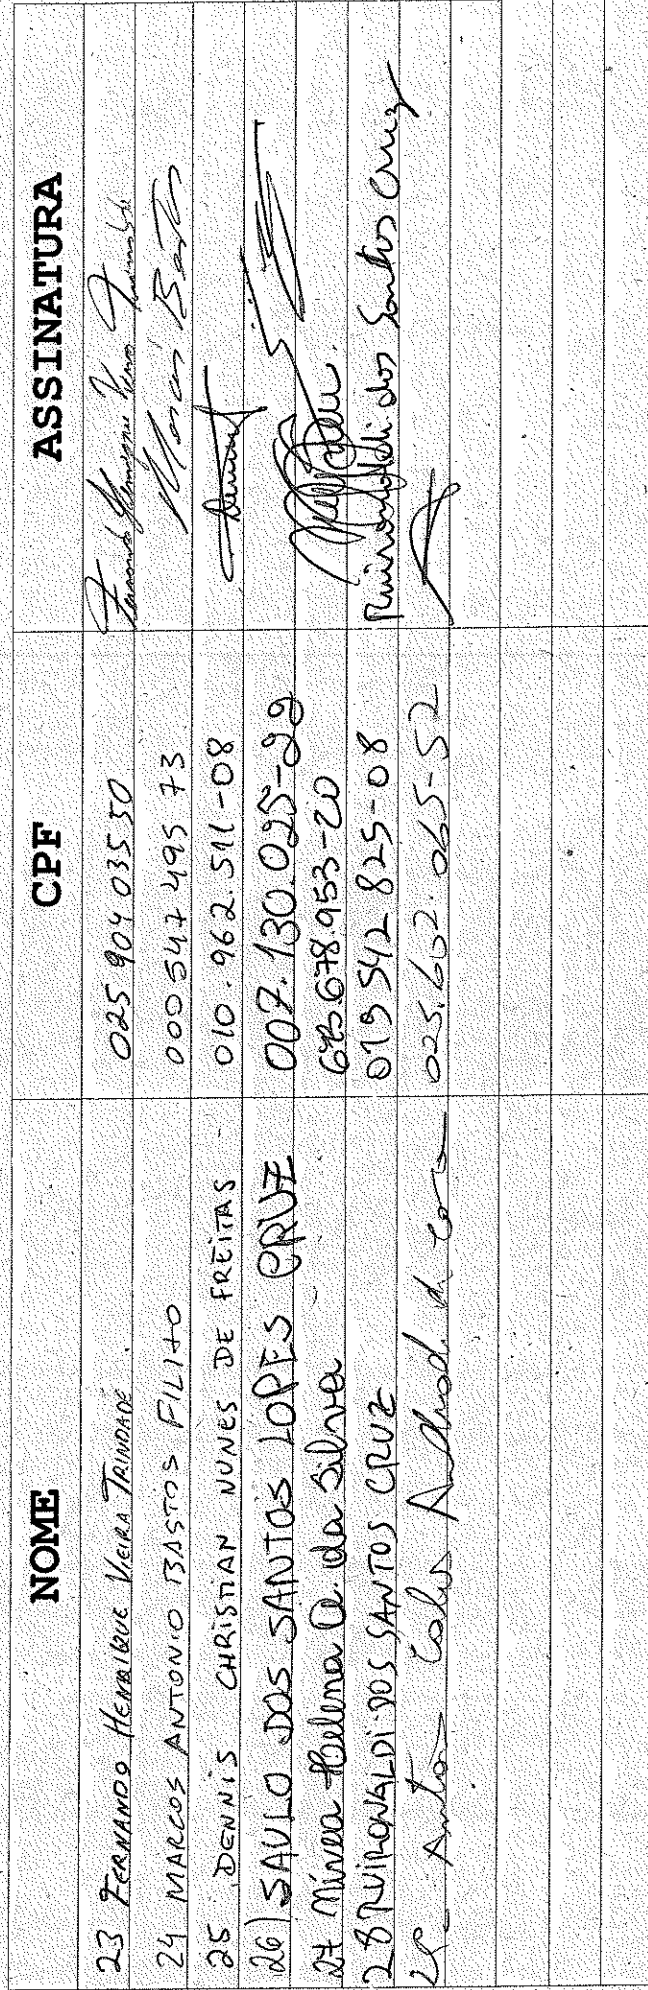 NOME CPF ASSINATURA
23 FERNANDO HENRIQUE VIEIRA TRINDADE 025 904 035 50
24 MARCOS ANTONIO BASTOS FILHO 000 547 495 73 Marcos Bastos
25 DENNIS CHRISTIAN NUNES DE FREITAS 010.962.511-08 Dennis
26) SAULO DOS SANTOS LOPES CRUZ 007.130.025-29
27 Minea Helena O. da Silva 675 678.953-20
28 RUIRONALDI DOS SANTOS CRUZ 019 542 825-08 Ruironaldi dos Santos Cruz
29 Antonio Carlos Andrade de 025.602.065-52